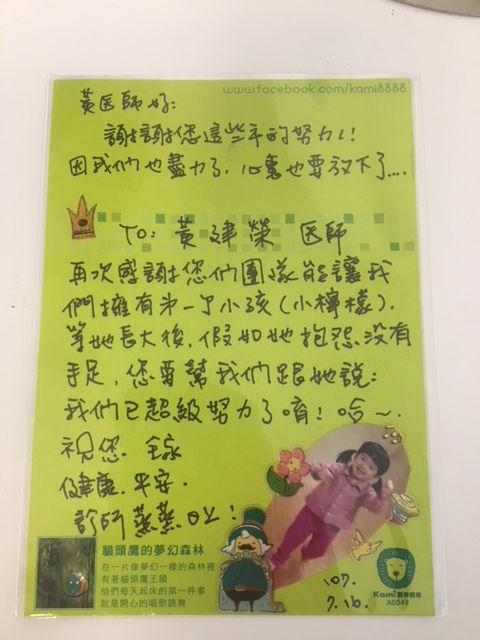 www.facebook.com/kami8888
黃医師好:
謝謝您這些年的努力!
因我們也盡力了，心裏也要放下了....
TO: 黃建榮 医師
再次感謝您們團隊能讓我
們擁有第一個小孩(小檸檬).
等她長大後，假如她抱怨沒有
手足，您要幫我們跟她說:
我們已超級努力了唷！哈～.
祝您. 全家
健康. 平安.
診所蒸蒸日上！
貓頭鷹的夢幻森林
在一片像夢幻一樣的森林裡
有著貓頭鷹王國
他們每天起床的第一件事
就是開心的唱歌跳舞
Kami
A0049
107.
7.16.